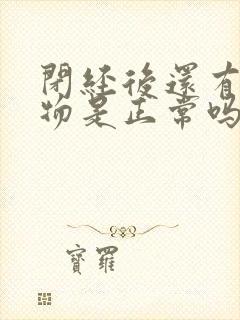 閉經後還有
物是正常吗
寶羅